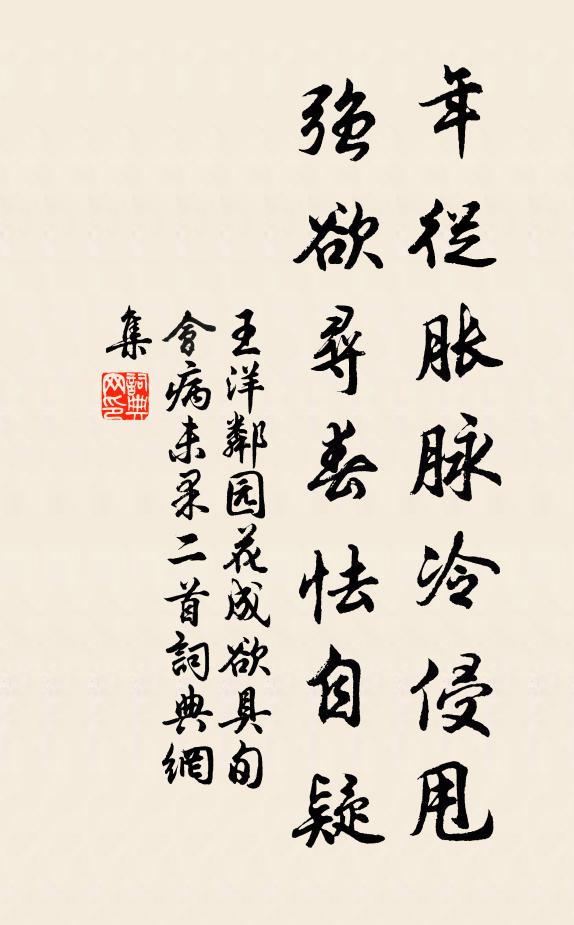 年從脹脉冷侵甩
強欲尋春怯自疑
王洋鄰园花成欲具旬
會病未果二首詞典網
集
詞典
网印